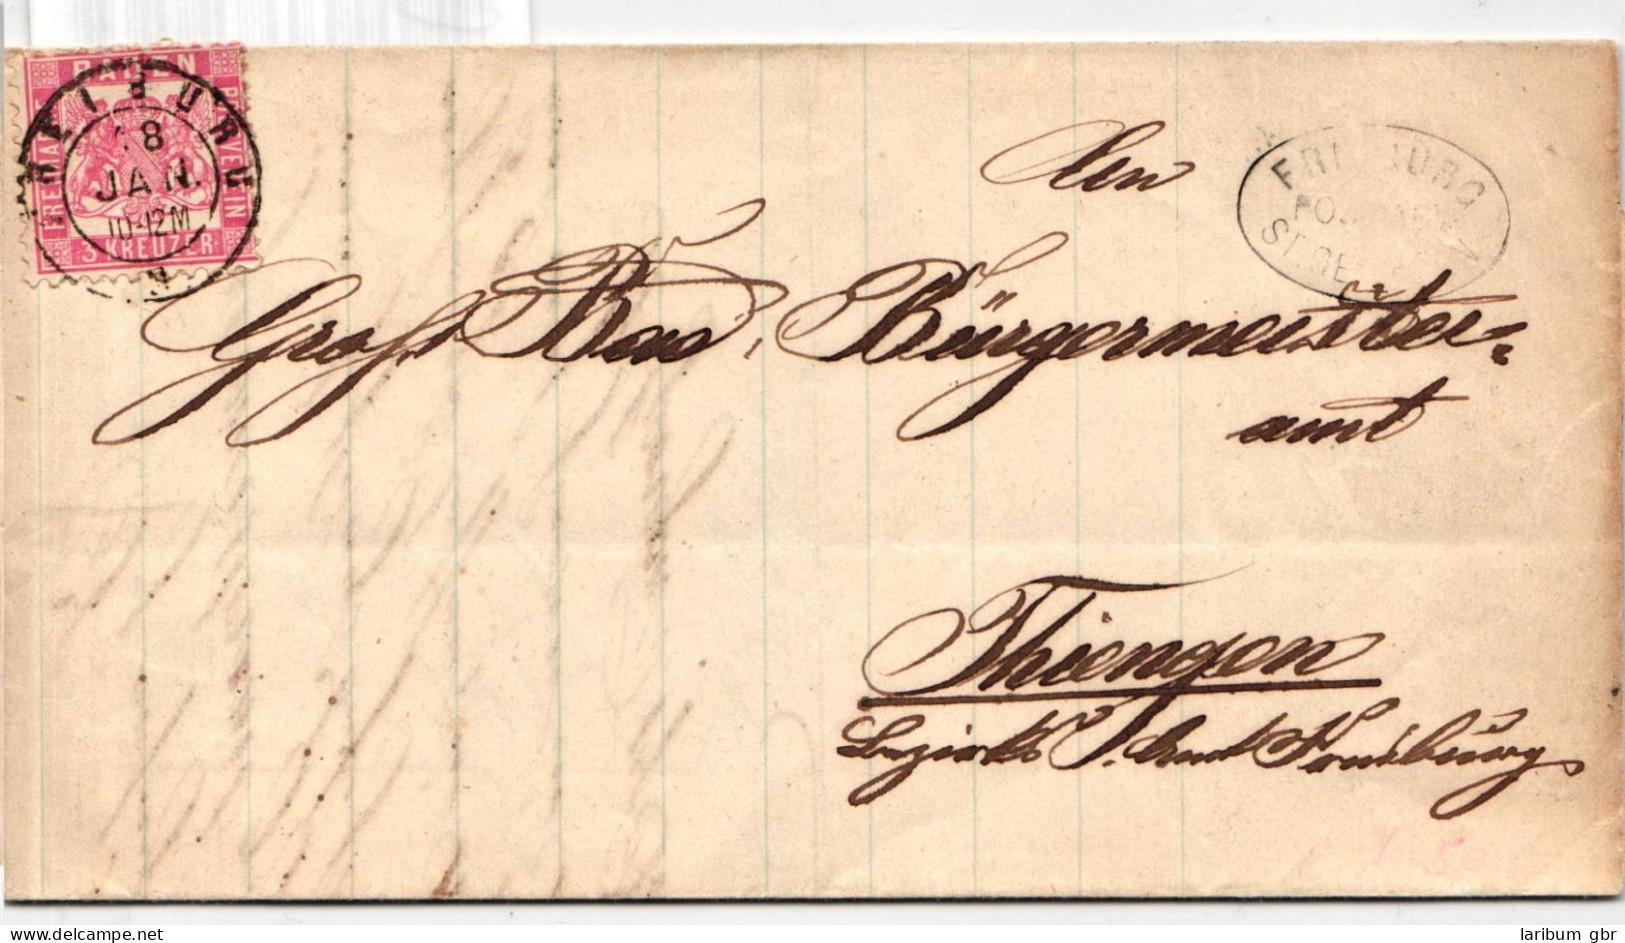 BADEN
FREIMARKE
POSTVEREIN
3 KREUZER
FREIBURG
18
JAN.
10-12M
FREIBURG
ST. GE
An
Grosh Bad. Bürgermeister-
amt
Thiengen
Bezirks Amt Freiburg
www.delcampe.net
laribum gbr